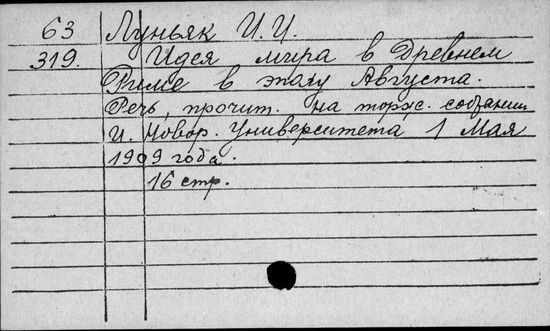 63 Луньяк И. И.
319. Идея мира в Древнем
Риме в эпоху Августа.
Речь, прочит. на торж. собрании
И. Новор. Университета 1 Мая
1909 года.
16 стр.